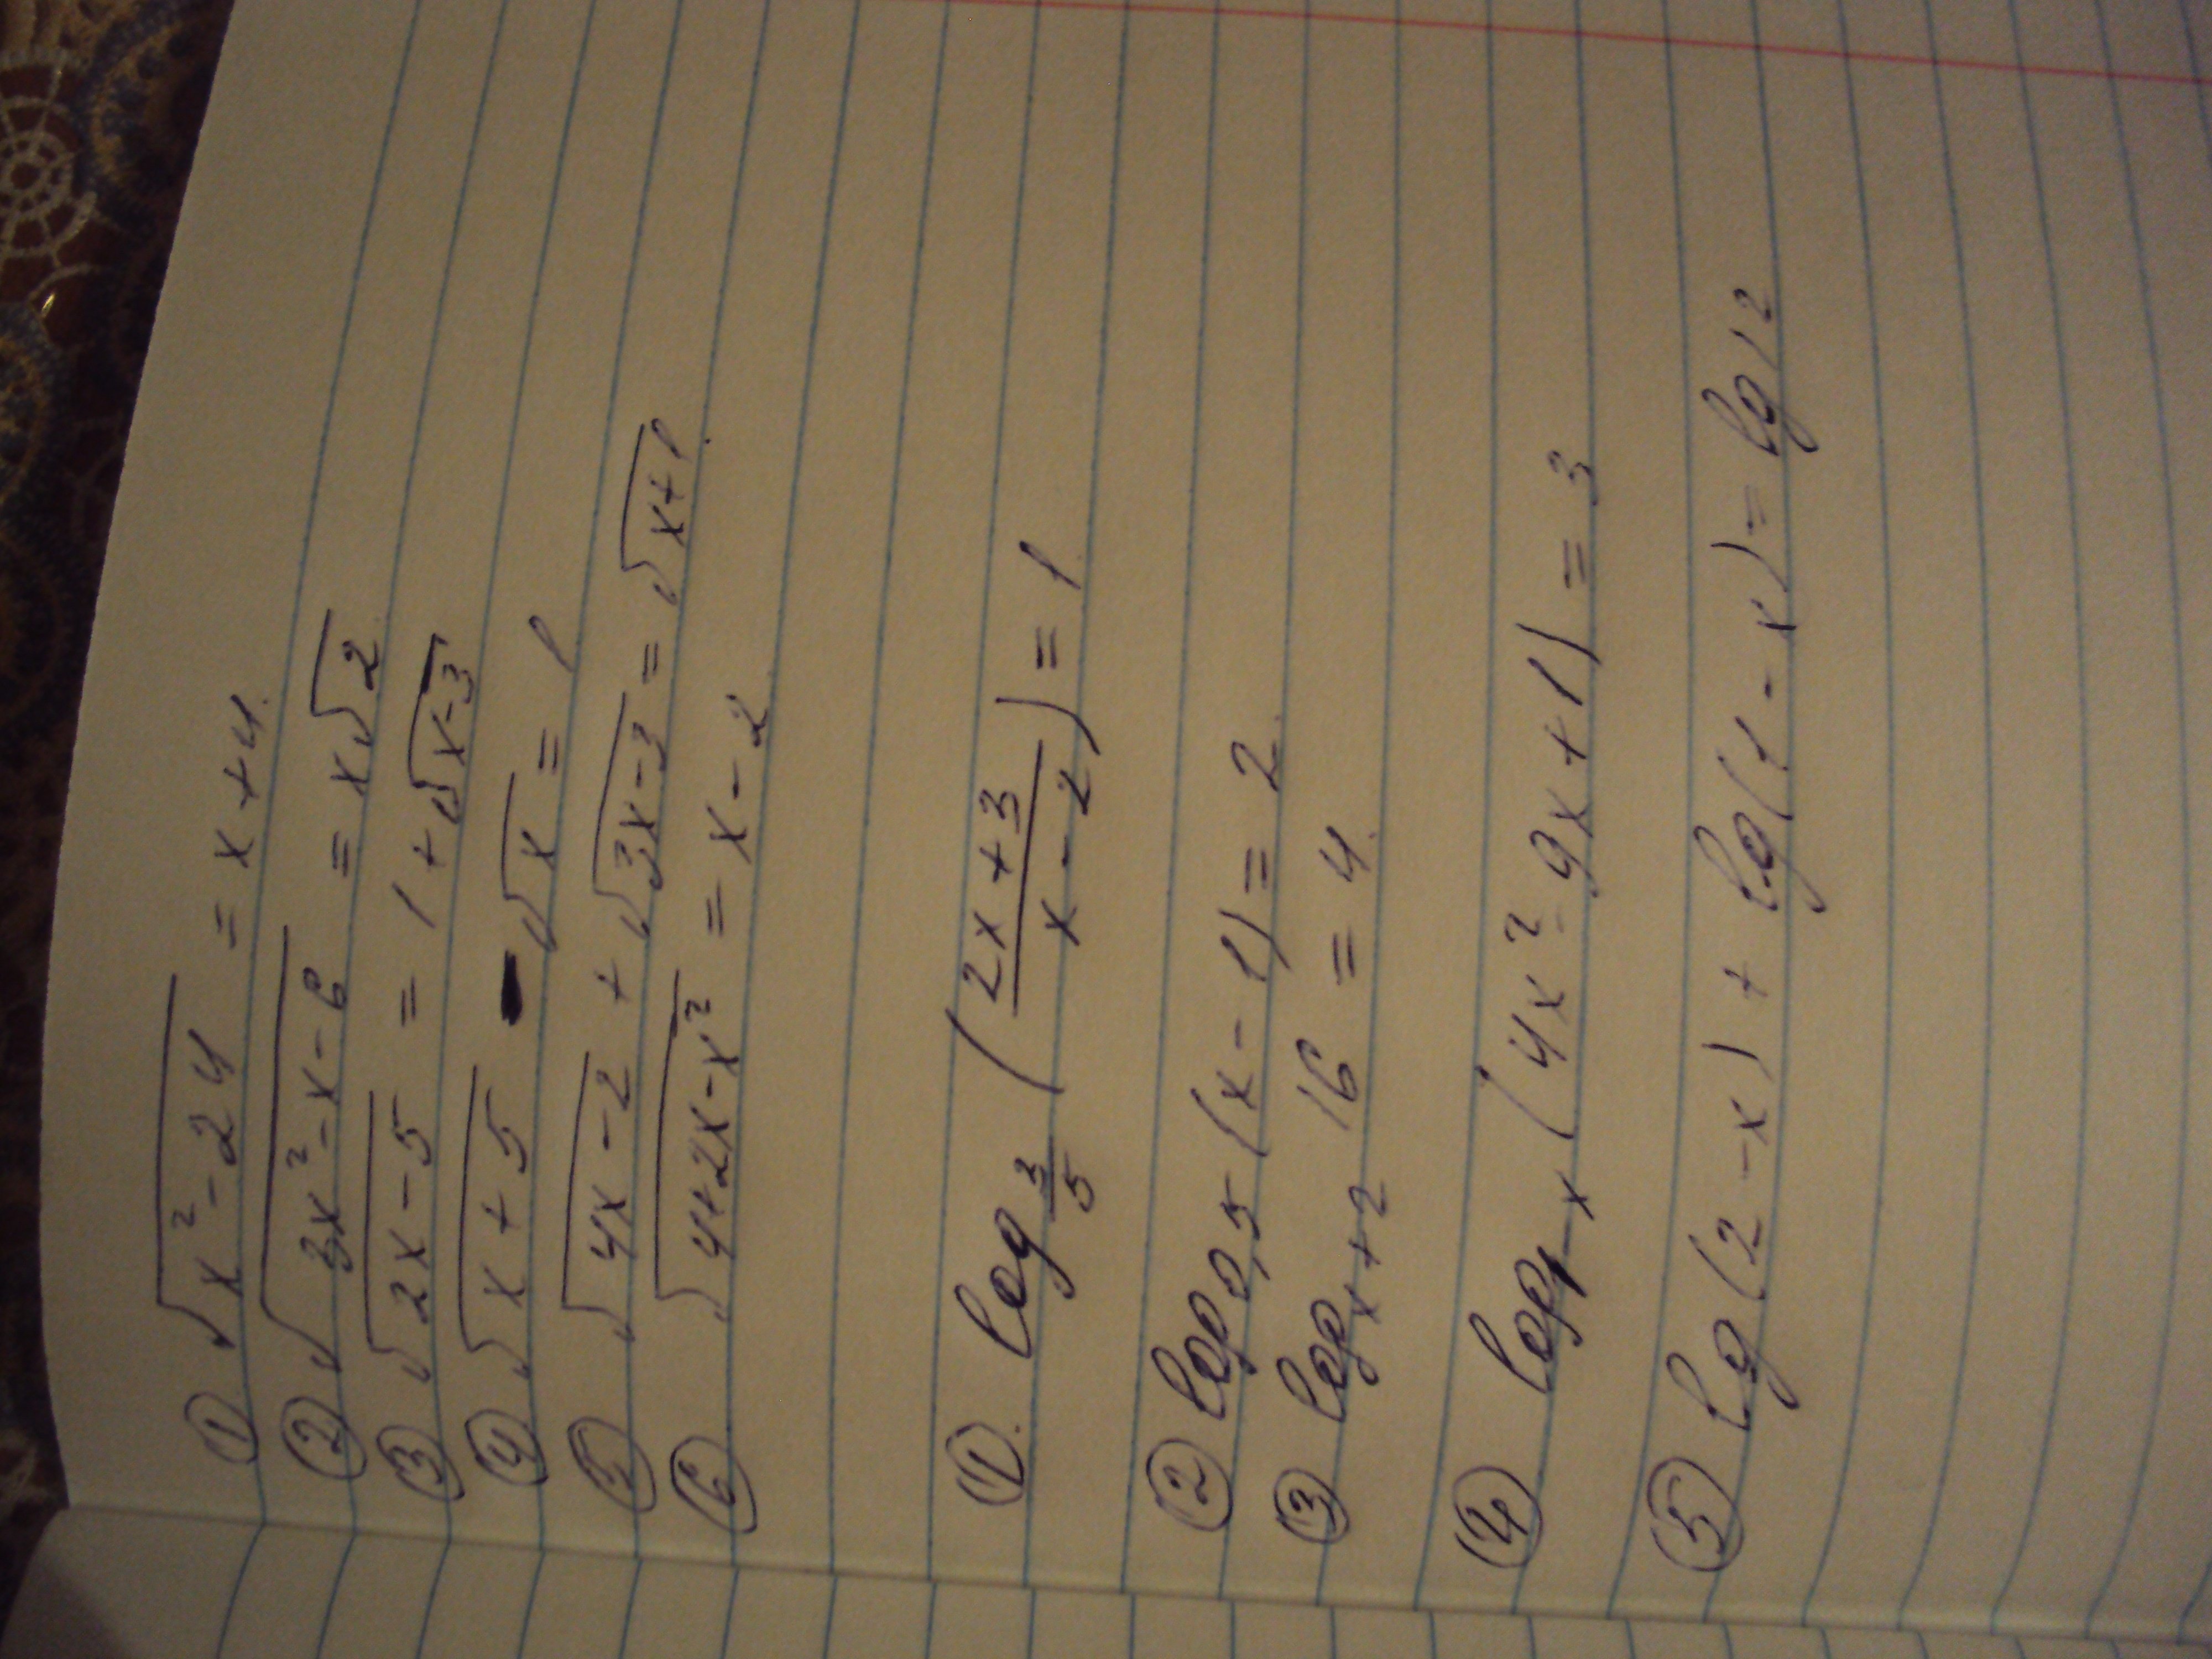 ① √(x² - 24) = x + 4.
② √(3x² - x - 6) = x√2
③ √(2x - 5) = 1 + √(x - 3)
④ √(x + 5) - √x = 1
⑤ √(4x - 2) + √(3x - 3) = √(x + 1).
⑥ √(4 + 2x - x²) = x - 2
①. log_{3/5} ((2x + 3)/(x - 2)) = 1.
② log_{0,5} (x - 1) = 2.
③ log_{x+2} 16 = 4.
④ log_{1-x} (4x² - 9x + 1) = 3
⑤ lg(2 - x) + lg(1 - x) = lg 12